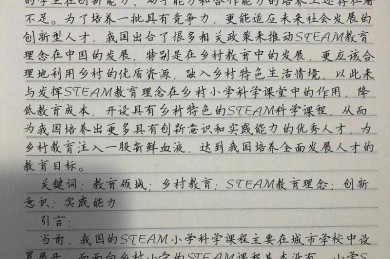 的学生在创新能力、动手能力和合作能力的培养上还存在着
不足。为了培养一批具有竞争力，更能适应未来社会发展的
创新型人才，我国出台了很多相关政策来推动STEAM教育
理念在中国的发展，特别是在乡村教育中的发展，更应该合
理地利用乡村的优质资源，融入乡村特色生活情境，以此来
与发挥STEAM教育理念在乡村小学科学课堂中的作用，降
低教育成本，开设具有乡村特色的STEAM科学课程，从而
为我国培养出更多具有创新意识和实践能力的优秀人才，为
乡村教育注入一股新鲜血液，达到我国培养全面发展人才的
教育目标。
关键词：教育领域；乡村教育；STEAM教育理念；创新
意识；实践能力
引言：
当前，我国的STEAM小学科学课程主要在城市学校中设